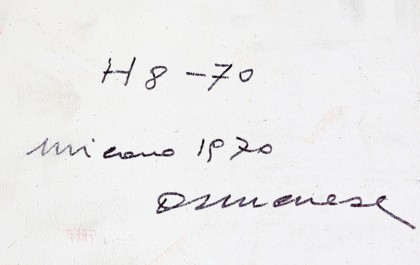 H 8 - 70
Milano 1970